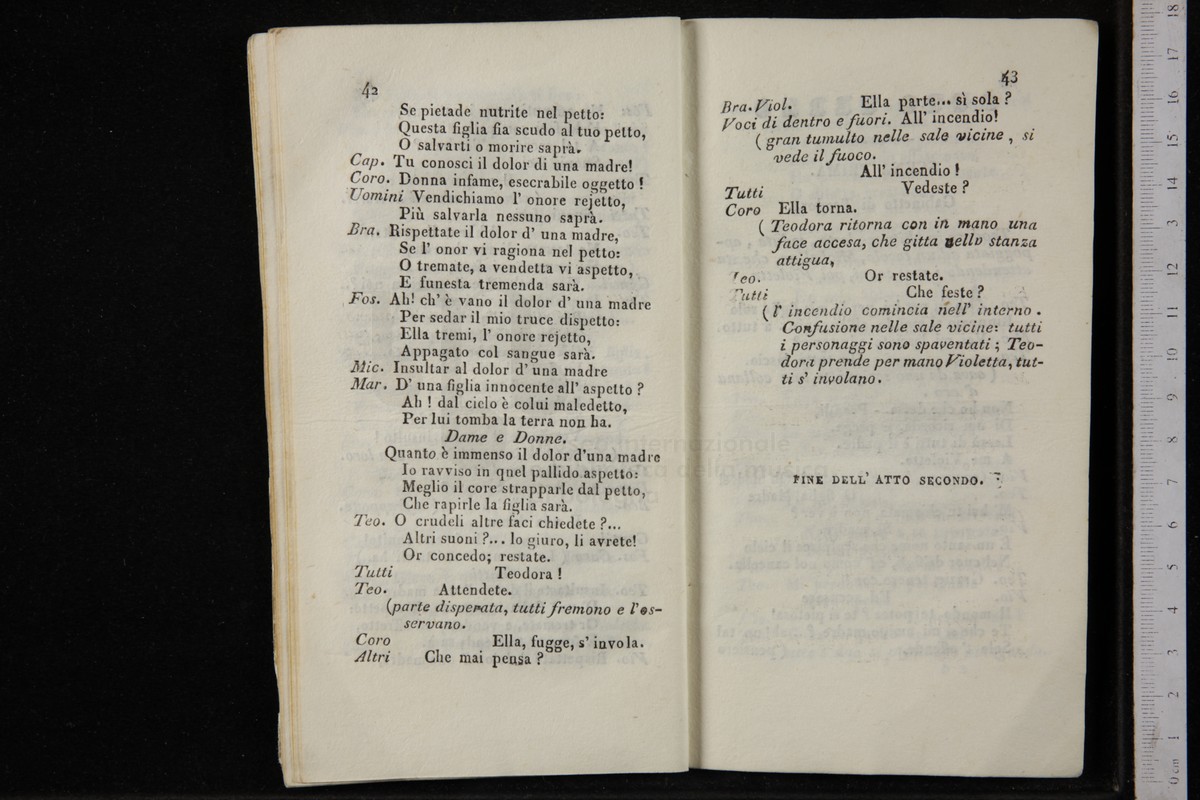 42
Se pietade nutrite nel petto:
Questa figlia fia scudo al tuo petto,
O salvarti o morire saprà.
Cap. Tu conosci il dolor di una madre!
Coro. Donna infame, esecrabile oggetto!
Uomini Vendichiamo l' onore rejetto,
Più salvarla nessuno saprà.
Bra. Rispettate il dolor d' una madre,
Se l' onor vi ragiona nel petto:
O tremate, a vendetta vi aspetto,
E funesta tremenda sarà.
Fos. Ah! ch' è vano il dolor d' una madre
Per sedar il mio truce dispetto:
Ella tremi, l' onore rejetto,
Appagato col sangue sarà.
Mic. Insultar al dolor d' una madre
Mar. D' una figlia innocente all' aspetto?
Ah! dal cielo è colui maledetto,
Per lui tomba la terra non ha.
Dame e Donne.
Quanto è immenso il dolor d'una madre
Io ravviso in quel pallido aspetto:
Meglio il core strapparle dal petto,
Che rapirle la figlia sarà.
Teo. O crudeli altre faci chiedete?...
Altri suoni?... Io giuro, li avrete!
Or concedo; restate.
Tutti Teodora!
Teo. Attendete.
(parte disperata, tutti fremono e l'os-
servano.
Coro Ella, fugge, s' invola.
Altri Che mai pensa?
43
Bra. Viol. Ella parte... sì sola?
Voci di dentro e fuori. All' incendio!
(gran tumulto nelle sale vicine, si
vede il fuoco.
All' incendio!
Tutti Vedeste?
Coro Ella torna.
(Teodora ritorna con in mano una
face accesa, che gitta nello stanza
attigua,
Teo. Or restate.
Tutti Che feste?
(l' incendio comincia nell' interno.
Confusione nelle sale vicine: tutti
i personaggi sono spaventati; Teo-
dora prende per mano Violetta, tut-
ti s' involano.
FINE DELL' ATTO SECONDO.